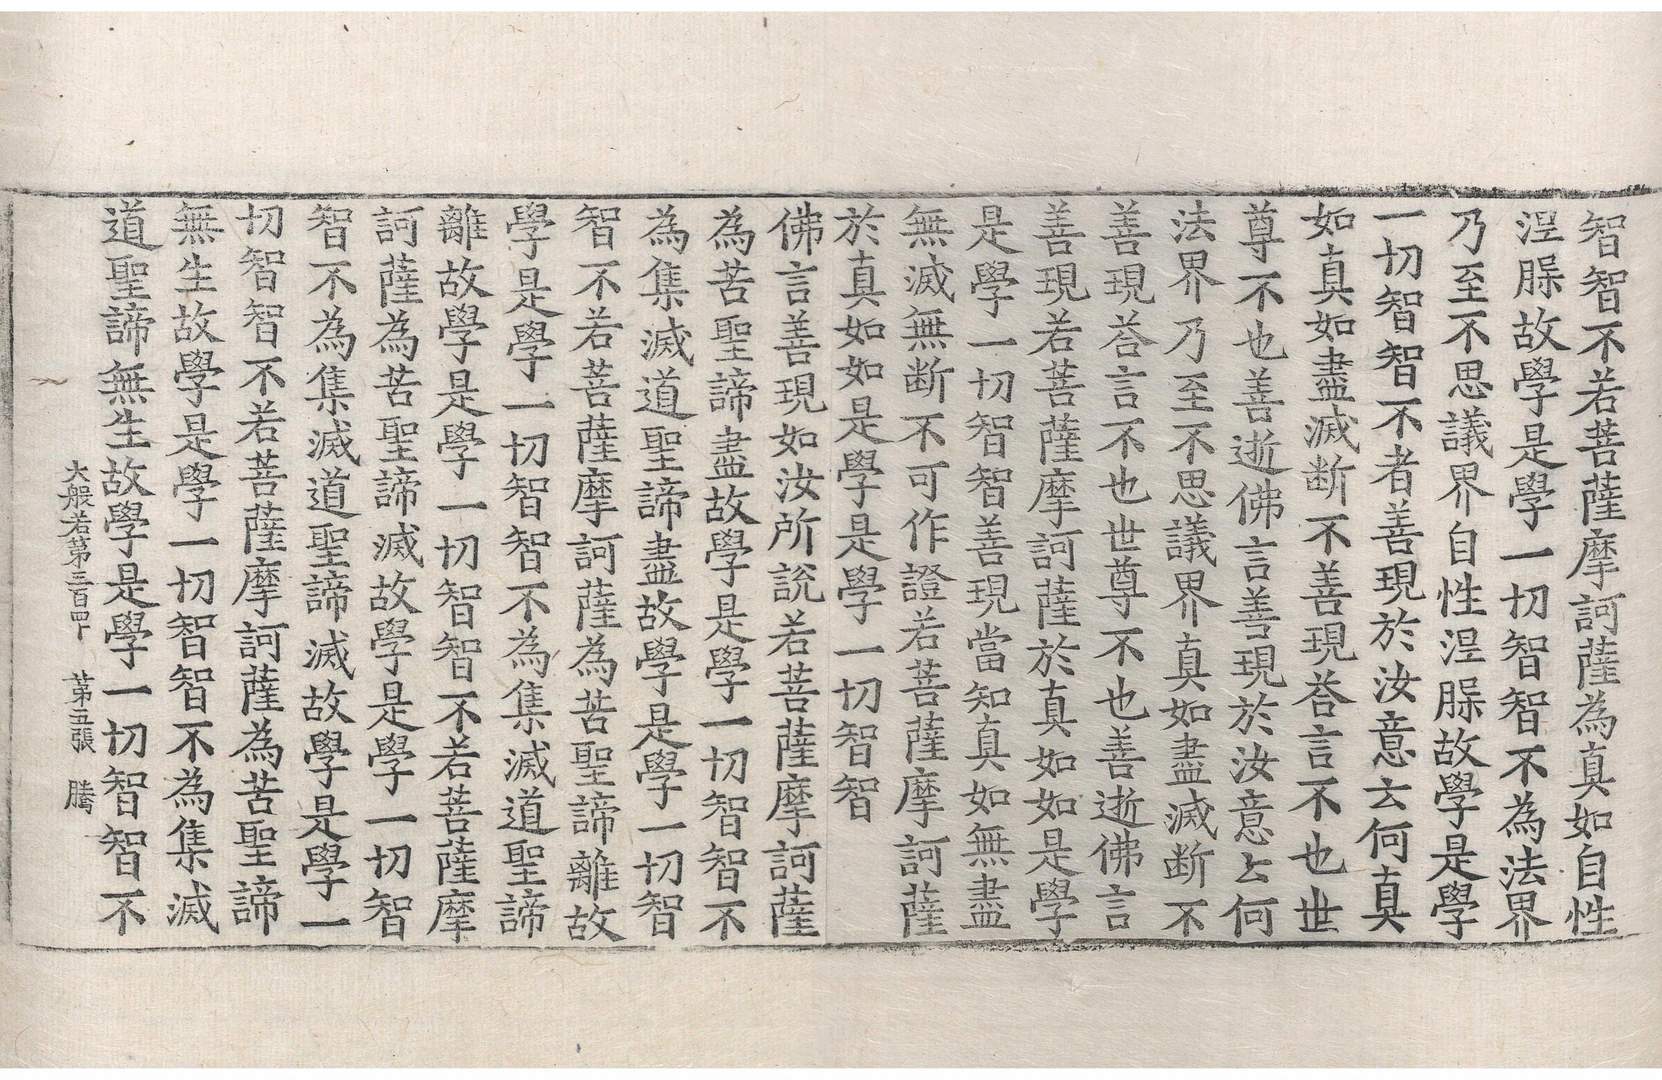 智智不若菩薩摩訶薩為真如自性
涅槃故學是學一切智智不為法界
乃至不思議界自性涅槃故學是學
一切智智不者善現於汝意云何真
如真如盡滅断不善現荅言不也世
尊不也善逝佛言善現於汝意云何
法界乃至不思議界真如盡滅断不
善現荅言不也世尊不也善逝佛言
善現若菩薩摩訶薩於真如如是學
是學一切智智善現當知真如無盡
無滅無断不可作證若菩薩摩訶薩
於真如如是學是學一切智智
佛言善現如汝所說若菩薩摩訶薩
為苦聖諦盡故學是學一切智智不
為集滅道聖諦盡故學是學一切智
智不若菩薩摩訶薩為苦聖諦離故
學是學一切智智不為集滅道聖諦
離故學是學一切智智不若菩薩摩
訶薩為苦聖諦滅故學是學一切智
智不為集滅道聖諦滅故學是學一
切智智不若菩薩摩訶薩為苦聖諦
無生故學是學一切智智不為集滅
道聖諦無生故學是學一切智智不
大般若第三百四十 第五張 騰